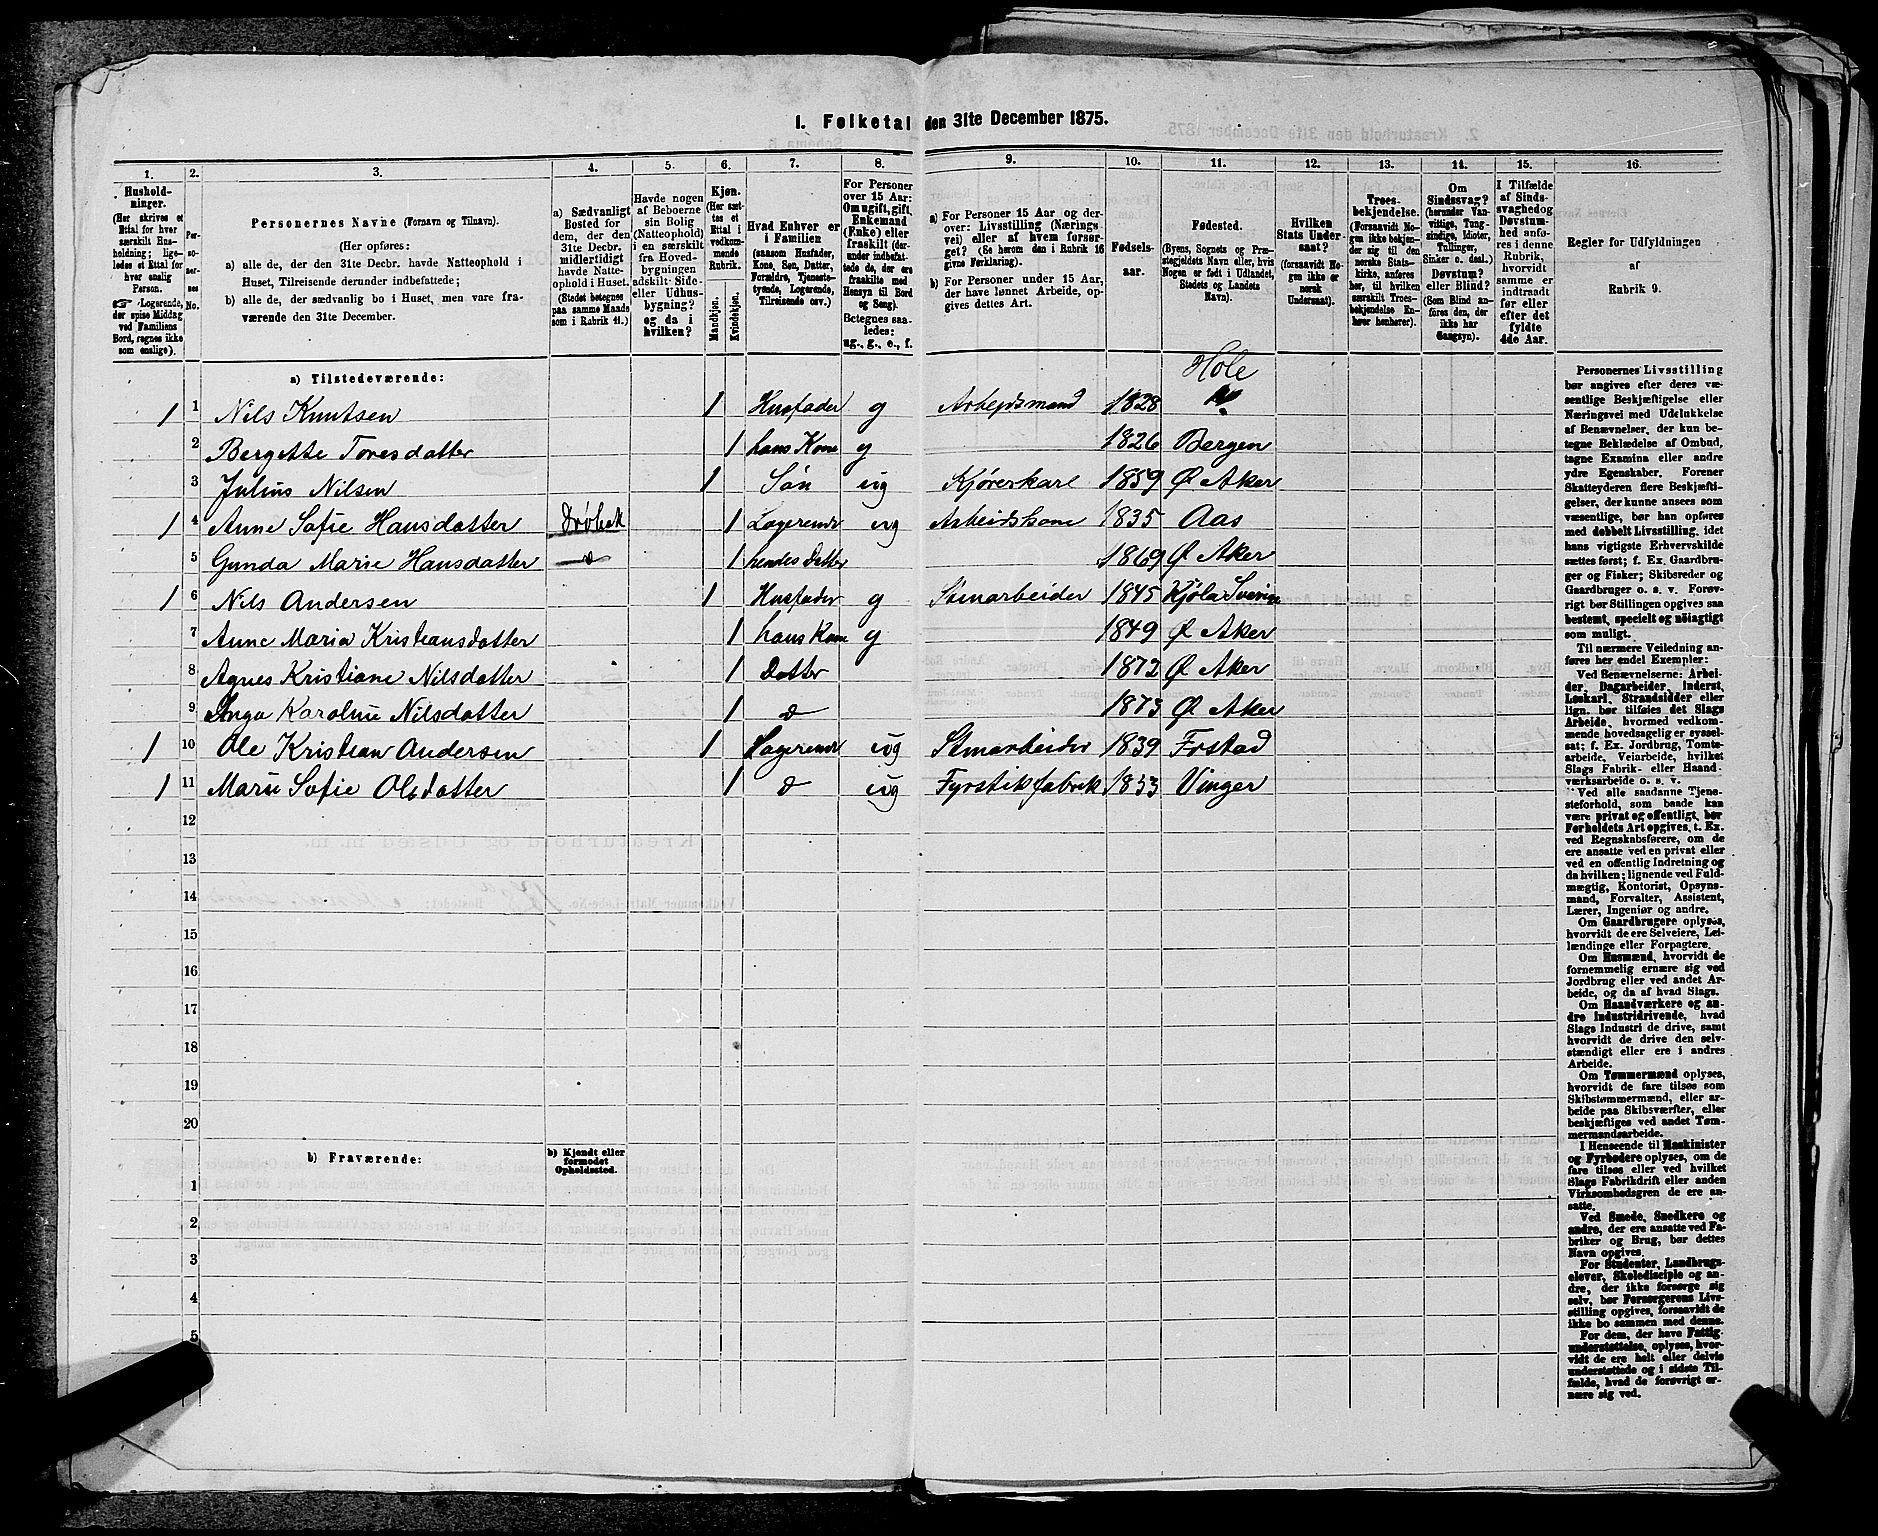 I. Folketal den 31te December 1875.
1. 2. 3. 4. 5. 6. 7. 8. 9. 10. 11. 12. 13. 14. 15. 16.
Husholdninger. (Her skrives et Ettal for hver særskilt Husholdning; ligeledes et Ettal for hver enslig Person. Logerende, der spise Middag ved Familiens Bord, regnes ikke som enslige).
Personernes No.
Personernes Navne (Fornavn og Tilnavn).
(Her opføres:
a) alle de, der den 31te Decbr. havde Natteophold i Huset, Tilreisende derunder indbefattede;
b) alle de, der sædvanlig bo i Huset, men vare fraværende den 31te December.
a) Sædvanligt Bosted for dem, der den 31te Decbr. midlertidigt havde Natteophold i Huset. (Stedet betegnes paa samme Maade som i Rubrik 11.)
Havde nogen af Beboerne sin Bolig (Natteophold) i en særskilt fra Hovedbygningen adskilt Side- eller Udhusbygning? og da i hvilken?
Kjøn. (Her sættes et Ettal i vedkommende Rubrik. Mandkjøn. Kvindekjøn.
Hvad Enhver er i Familien (saasom Husfader, Kone, Søn, Datter, Forældre, Tjenestetyende, Logerende, Tilreisende osv.)
For Personer over 15 Aar: Om ugift, gift, Enkemand (Enke) eller fraskilt (derunder indbefattede de, der ere fraskilte med Hensyn til Bord og Seng). Betegnes saaledes: ug., g., e., f.
a) For Personer 15 Aar og derover: Livsstilling (Næringsvei) eller af hvem forsørget? (Se herom den i Rubrik 16 givne Forklaring).
b) For Personer under 15 Aar, der have lønnet Arbeide, opgives dettes Art.
Fødselsaar.
Fødested. (Byens, Sognets og Præstegjeldets Navn eller, hvis Nogen er født i Udlandet, Stedets og Landets Navn).
Hvilken Stats Undersaat? (forsaavidt Nogen ikke er norsk Undersaat).
Troesbekjendelse. (Forsaavidt Nogen ikke bekjender sig til den norske Statskirke, anføres her, til hvilken særskilt Troesbekjendelse Enhver henhører).
Om Sindssvag? (herunder Vanvittige, Tungsindige, Idioter, Tullinger, Sinker o. desl.) Døvstum? eller Blind? (Som Blind anføres den, der ikke har Gangsyn).
I Tilfælde af Sindssvaghed og Døvstumhed anføres i denne Rubrik, hvorvidt samme er indtraadt før eller efter det fyldte 4de Aar.
Regler for Udfyldningen af Rubrik 9.
a) Tilstedeværende:
Hole
1 1 Nils Knutsen 1 Husfader g Arbejdsmand 1828
2 Bergette Toresdatter 1 hans Kone g 1826 Bergen
3 Julius Nilsen 1 Søn ug Kjørerkarl 1859 Ø Aker
1 4 Anne Sofie Hansdatter Drøbak 1 Logerende ug Arbeidskone 1835 Aas
5 Gunda Marie Hansdatter d 1 hendes Datter 1869 Ø Aker
1 6 Nils Andersen 1 Husfader g Stenarbeider 1845 Kjøla Sverin
7 Anne Maria Kristiansdatter 1 hans Kone g 1849 Ø Aker
8 Agnes Kristiane Nilsdatter 1 Datter 1872 Ø Aker
9 Inga Karoline Nilsdatter 1 d 1873 Ø Aker
1 10 Ole Kristian Andersen 1 Logerende ug Stenarbeider 1839 Frstad
1 11 Marie Sofie Olsdatter 1 d ug Fyrstikfabrik 1853 Vinger
12
13
14
15
16
17
18
19
20
b) Fraværende: b) Kjendt eller formodet Opholdssted.
1
2
3
4
5
Personernes Livsstilling
bør angives efter deres væ-
sentlige Beskjæftigelse eller
Næringsvei med Udelukkelse
af Benævnelser, der kun be-
tegne Beklædelse af Ombud,
tagne Examina eller andre
ydre Egenskaber. Forener
Skatteyderen flere Beskjæfti-
gelser, der kunne ansees som
væsentlige, bør han opføres
med dobbelt Livsstilling, idet
hans vigtigste Erhvervskilde
sættes først; f. Ex. Gaardbru-
ger og Fisker; Skibsreder og
Gaardbruger o. s. v. Forøv-
rigt bør Stillingen opgives saa
bestemt, specielt og nøiagtigt
som muligt.
Til nærmere Veiledning an-
føres her endel Exempler:
Ved Benævnelserne: Arbei-
der, Dagarbeider, Inderst,
Løskarl, Strandsidder eller
lign. bør tilføies det Slags
Arbeide, hvormed vedkom-
mende hovedsagelig er syssel-
sat; f. Ex. Jordbrug, Tomte-
arbeide, Veiarbeide, hvilket
Slags Fabrik- eller Haand-
værksarbeide o. s. v.
Ved alle saadanne Tjene-
steforhold, som baade kan
være privat og offentligt, bør
Forholdets Art opgives, t. Ex.
ved Regnskabsførere, om de
ere ansatte ved en privat eller
ved en offentlig Indretning og
da hvilken; lignende ved Fuld-
mægtig, Kontorist, Opsyns-
mand, Forvalter, Assistent,
Lærer, Ingeniør og andre.
Om Gaardbrugere oplyses,
hvorvidt de ere Selveiere, Lei-
lændinge eller Forpagtere.
Om Husmænd, hvorvidt de
fornemmelig ernære sig ved
Jordbrug eller ved andet Ar-
beide, og da af hvad Slags.
Om Haandværkere og an-
dre Industridrivende, hvad
Slags Industri de drive, samt
hvorvidt de drive den selv-
stændigt eller ere i andres
Arbeide.
Om Tømmermænd oplyses,
hvorvidt de fare tilsøs som
Skibstømmermænd, eller ar-
beide paa Skibsværfter, eller
beskjæftiges ved andet Tøm-
mermandsarbeide.
I Henseende til Maskinister
og Fyrbødere oplyses, om de
fare tilsøs eller ved hvilket
Slags Fabrikdrift eller anden
Virksomhedsgren de ere an-
satte.
Ved Smede, Snedkere og
andre, der ere ansatte ved Fa-
briker og Brug, bør dettes
Navn opgives.
For Studenter, Landbrugs-
elever, Skoledisciple og an-
dre, der ikke forsørge sig
selv, bør Forsørgerens Livs-
stilling opgives, forsaavidt de
ikke bo sammen med denne.
For dem, der have Fattig-
understøttelse, oplyses, hvor-
vidt de ere helt eller delvis
understøttede og i sidste Til-
fælde, hvad de forøvrigt er-
nære sig ved.